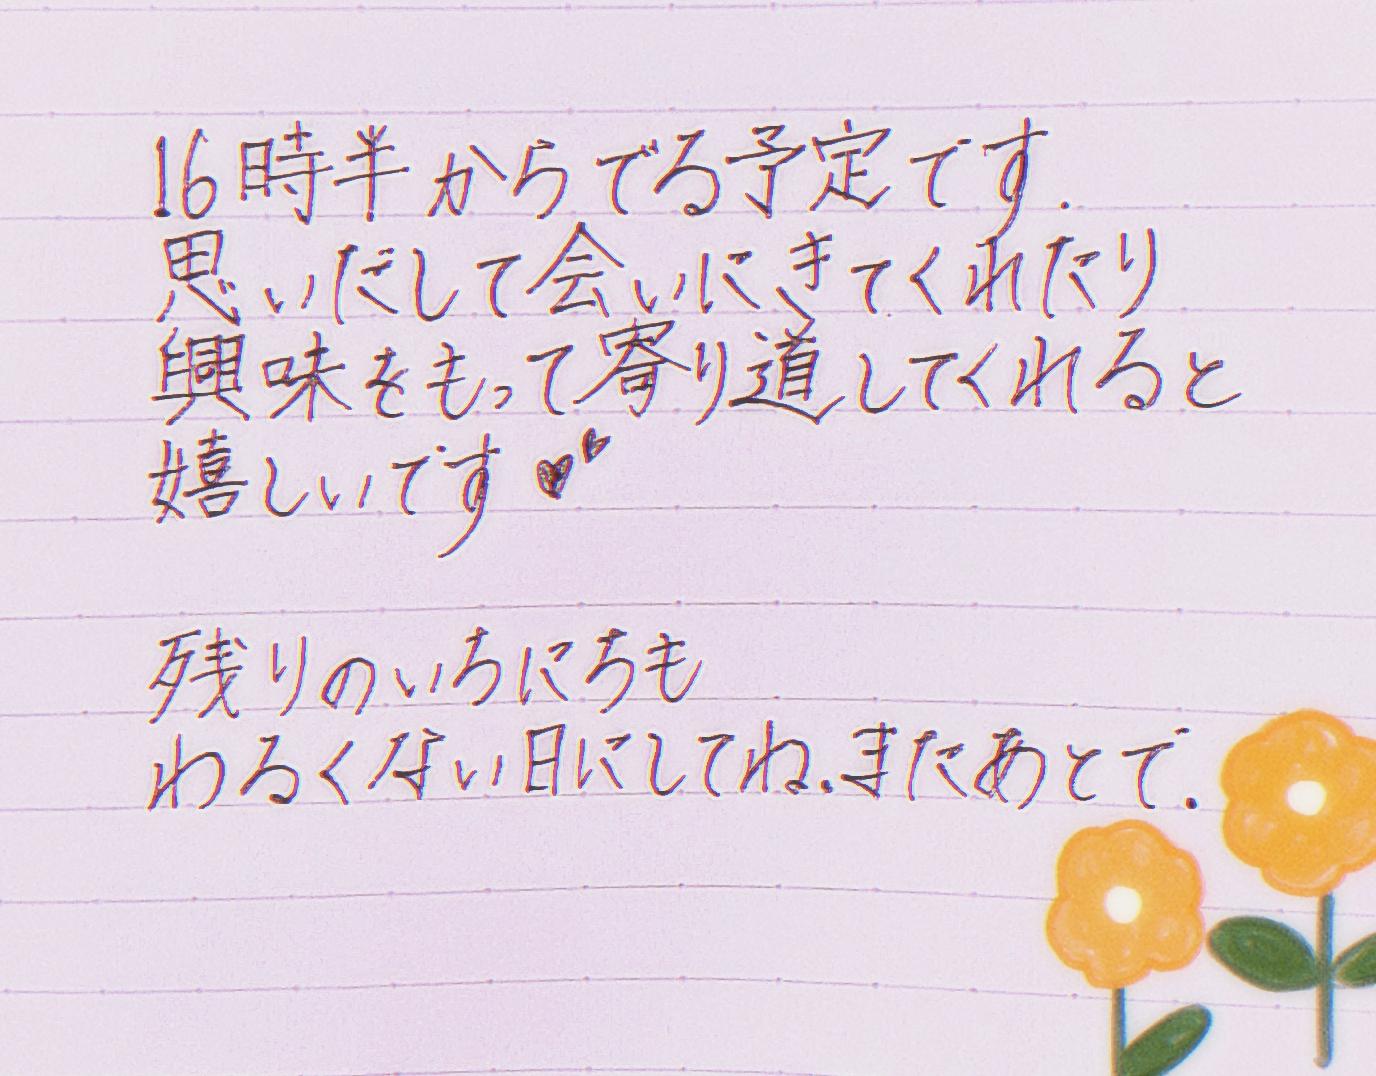 16時半からでる予定です.
思いだして会いにきてくれたり
興味をもって寄り道してくれると
嬉しいです♥♥
残りのいちにちも
わるくない日にしてね.またあとで.